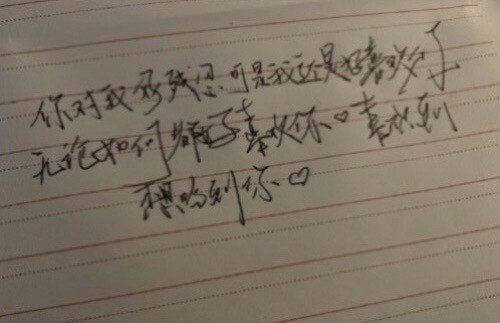 你对我好残忍,可是我还是好喜欢你
无论如何都好喜欢你♡喜欢到
想吻到你♡